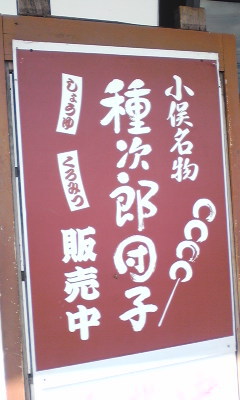 小俣名物
種次郎団子
しょうゆ
くろみつ
販売中